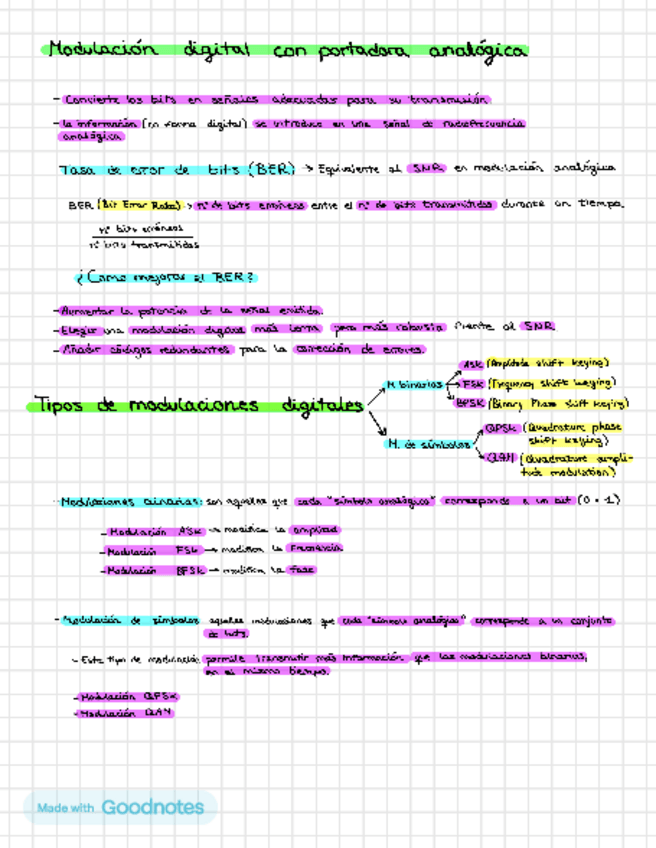 Modulación digital con portadora analógica
- Convierte los bits en señales adecuadas para su transmisión
- la información (en forma digital) se introduce en una señal de radiofrecuencia
analógica
Tasa de error de bits (BER) → Equivalente al SNR en modulación analógica
BER (Bit Error Rate) → nº de bits erróneos entre el nº de bits transmitidos durante un tiempo.
nº bits erróneos
nº bits transmitidos
¿Como mejorar el BER?
- Aumentar la potencia de la señal emitida.
- Elegir una modulación digital más lenta pero más robusta frente al SNR
- Añadir códigos redundantes para la corrección de errores.
Tipos de modulaciones digitales
M. binarias
ASK (Amplitude shift keying)
FSK (Frequency shift keying)
BPSK (Binary Phase shift keying)
M. de símbolos
QPSK (Quadrature phase
shift keying)
QAM (Quadrature ampli-
tude modulation)
- Modulaciones binarias: son aquellas que cada "símbolo analógico" corresponde a un bit (0 o 1)
- Modulación ASK → modifica la amplitud
- Modulación FSK → modifica la frecuencia
- Modulación BPSK → modifica la fase
- Modulación de símbolos aquellas modulaciones que cada "símbolo analógico" corresponde a un conjunto
de bits.
- Este tipo de modulación permite transmitir más información que las modulaciones binarias,
en el mismo tiempo.
- Modulación QPSK
- Modulación QAM
Made with Goodnotes